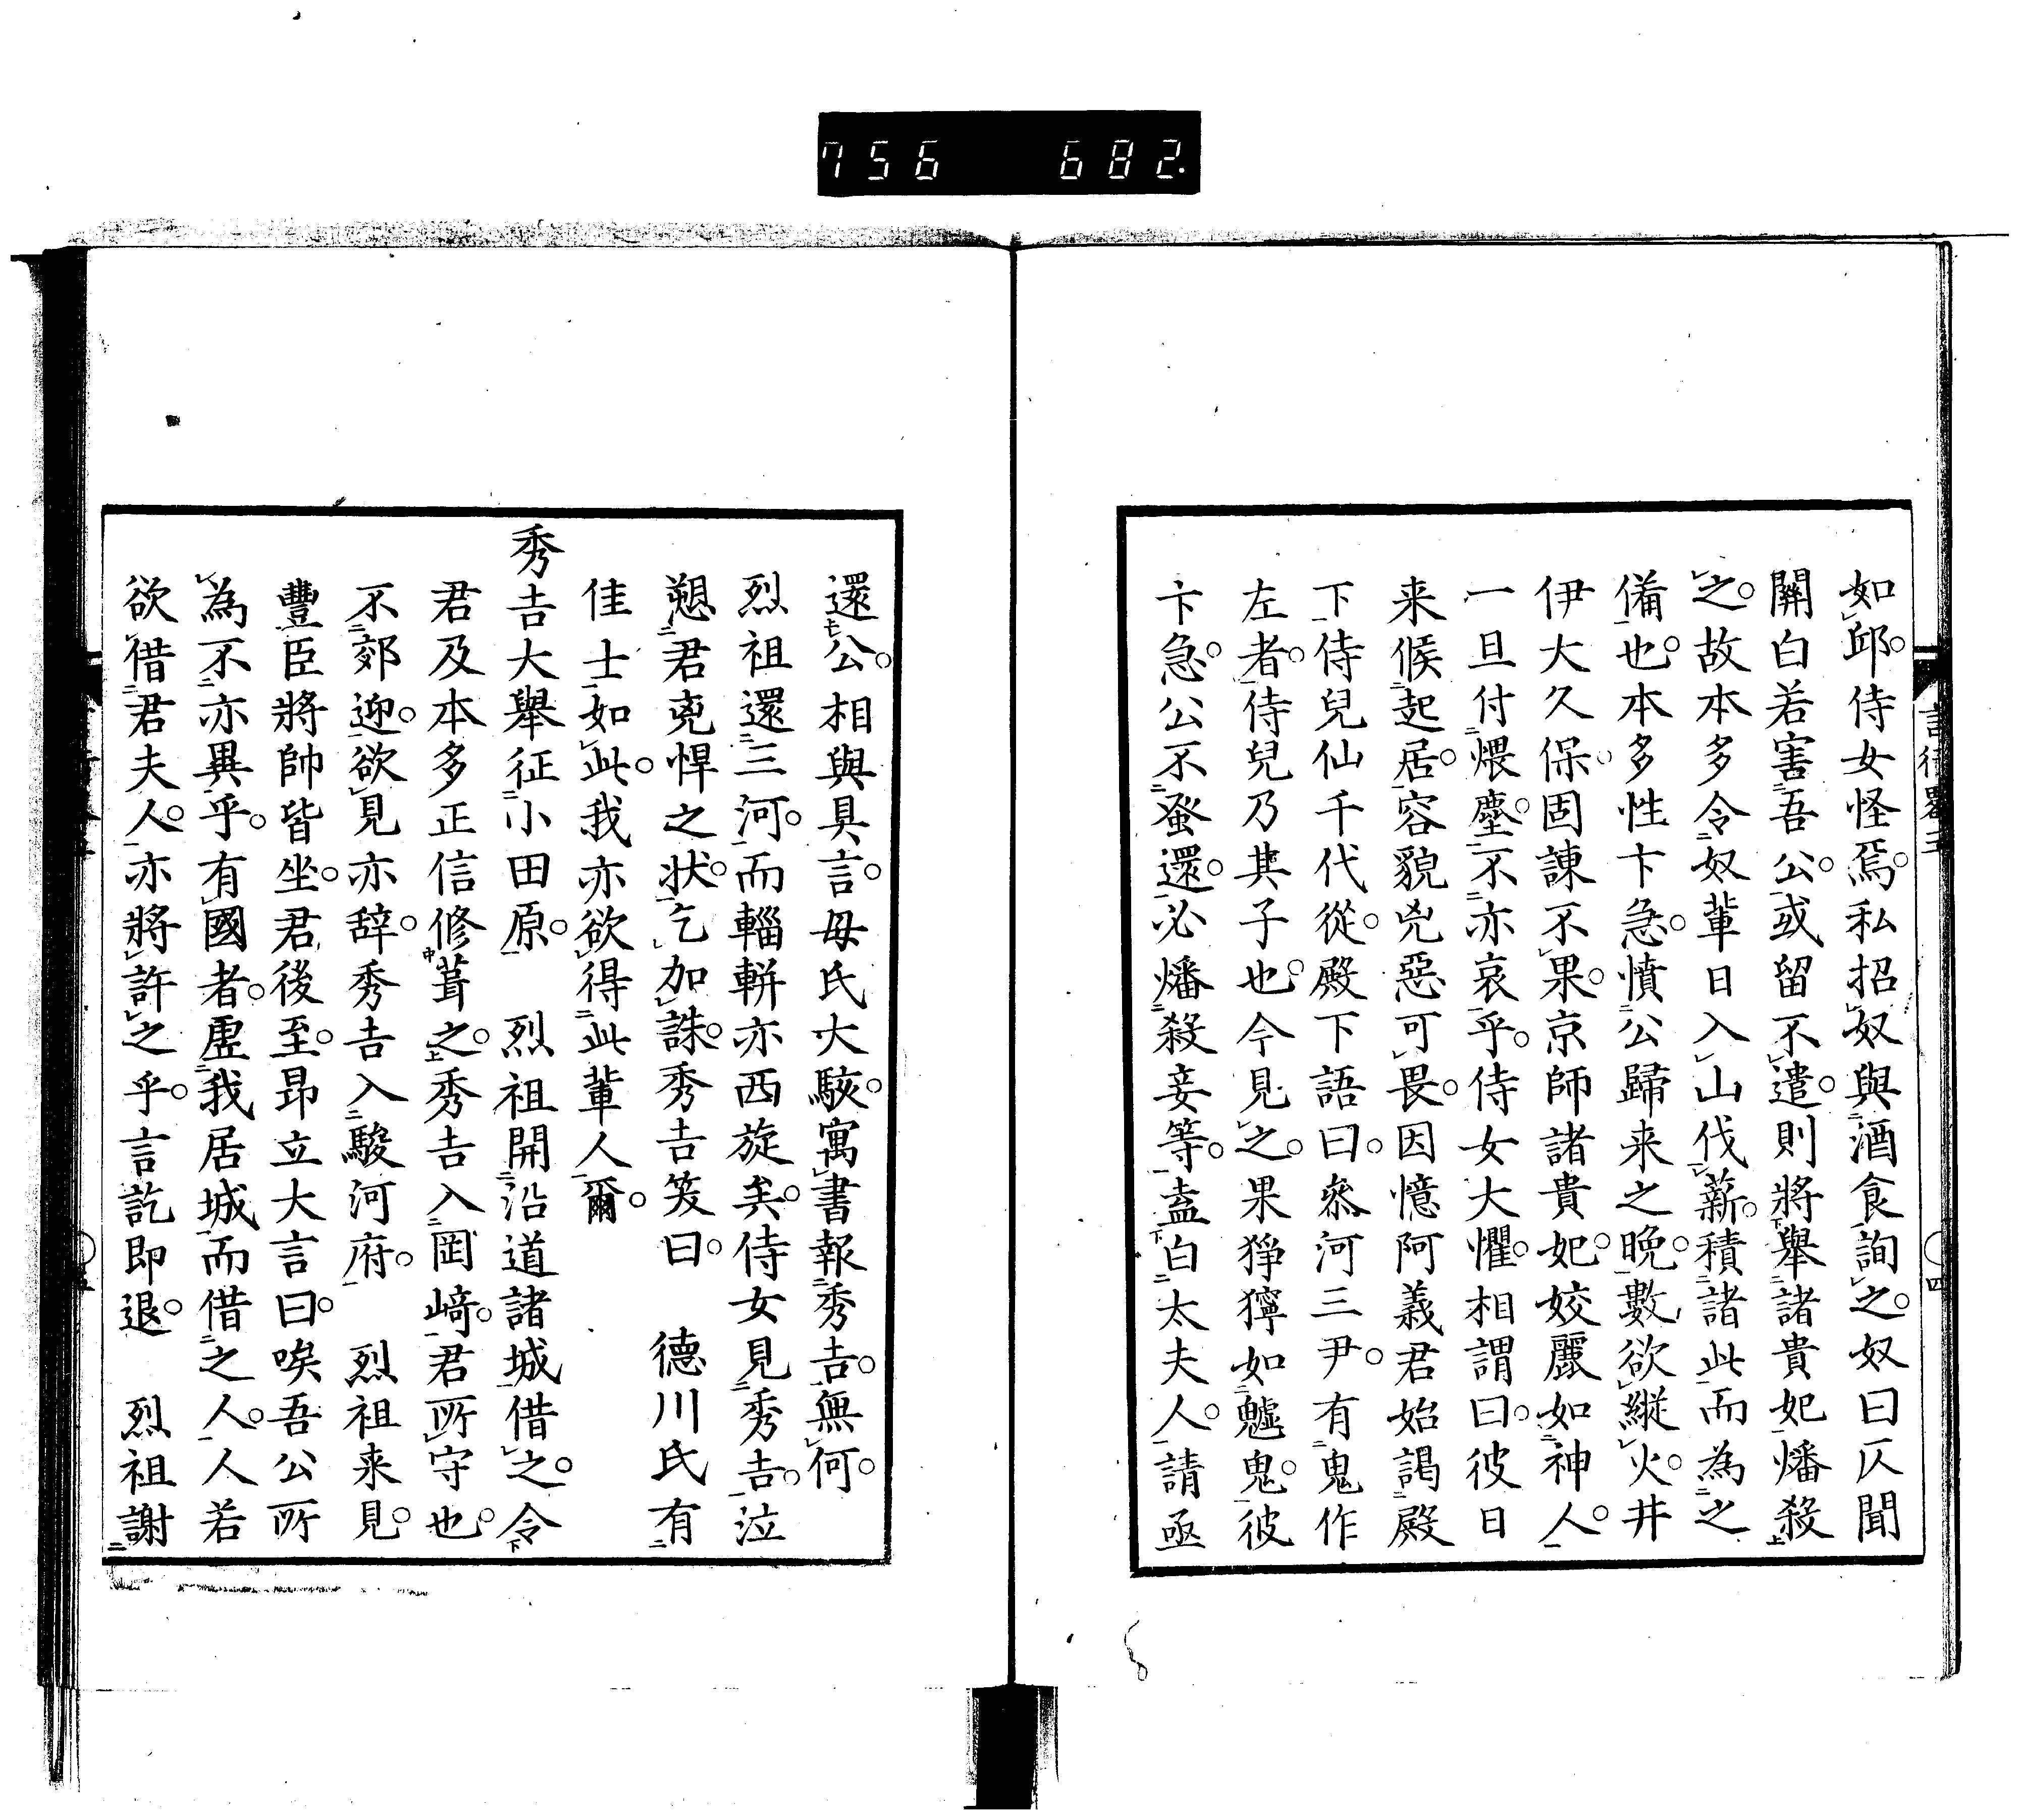 756 682.
如邱。侍女怪焉。私招奴與酒食詢之。奴曰仄聞
關白若害吾公。或留不遣。則將舉諸貴妃燔殺
之。故本多令奴輩日入山伐薪。積諸此而為之
備也。本多性卞急。憤公歸来之晩。數欲縱火。井
伊大久保固諫不果。京師諸貴妃。姣麗如神人。
一旦付煨塵。不亦哀乎。侍女大懼。相謂曰。彼日
来候起居。容貌兇惡可畏。因憶阿義君始謁殿
下。侍兒仙千代從。殿下語曰。叅河三尹。有鬼作
左者。侍兒乃其子也。今見之。果猙獰如魖鬼。彼
卞急。公不蚤還。必燔殺妾等。盍白太夫人。請亟
還公。相與具言。母氏大駭。寓書報秀吉。無何。
烈祖還三河。而輜輧亦西旋矣。侍女見秀吉。泣
愬君兇悍之状。乞加誅。秀吉笑曰。德川氏有
佳士如此。我亦欲得此輩人爾。
秀吉大舉征小田原。烈祖開沿道諸城借之。令
君及本多正信修葺之。秀吉入岡﨑。君所守也。
不郊迎。欲見亦辞。秀吉入駿河府。烈祖来見。
豐臣將帥皆坐。君後至。昂立大言曰。唉吾公所
為不亦異乎。有國者。虛我居城而借之人。人若
欲借君夫人。亦將許之乎。言訖即退。烈祖謝